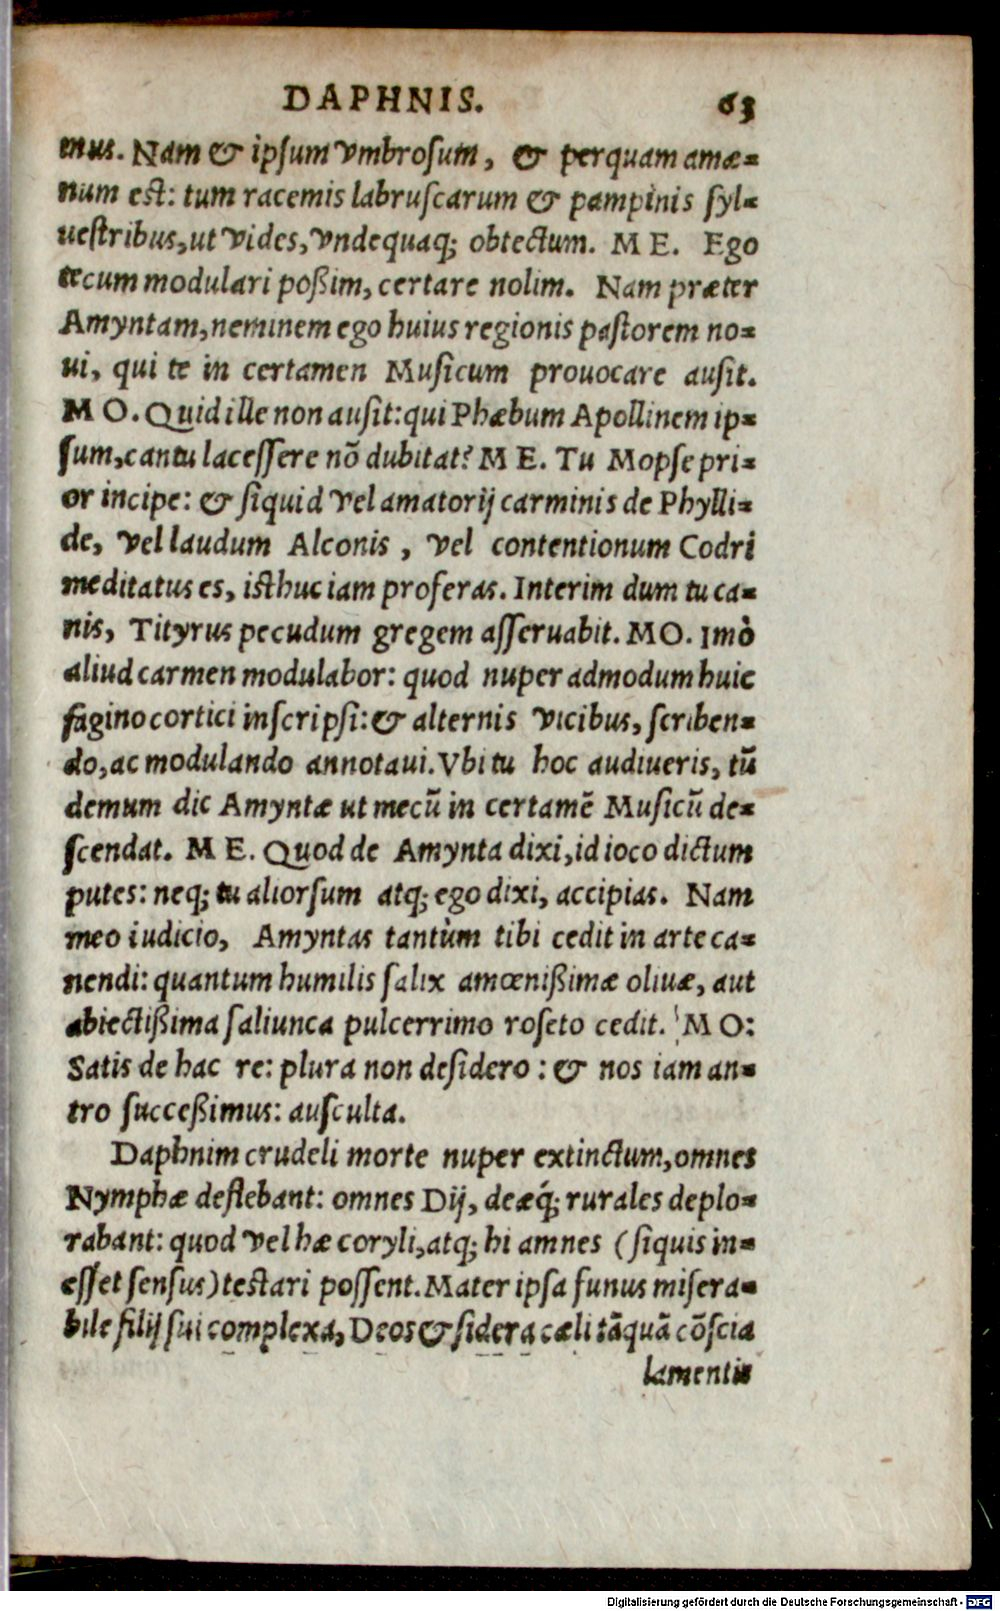 DAPHNIS. 63
mus. Nam & ipsum vmbrosum, & perquam amæ=
num est: tum racemis labruscarum & pampinis syl=
uestribus, ut vides, vndequaq; obtectum. ME. Ego
tecum modulari poßim, certare nolim. Nam præter
Amyntam, neminem ego huius regionis pastorem no=
ui, qui te in certamen Musicum prouocare ausit.
MO. Quid ille non ausit: qui Phæbum Apollinem ip=
sum, cantu lacessere nõ dubitat? ME. Tu Mopse pri=
or incipe: & siquid vel amatorij carminis de Phylli=
de, vel laudum Alconis, vel contentionum Codri
meditatus es, isthuc iam proferas. Interim dum tu ca=
nis, Tityrus pecudum gregem asseruabit. MO. Imò
aliud carmen modulabor: quod nuper admodum huic
fagino cortici inscripsi: & alternis vicibus, scriben=
do, ac modulando annotaui. Vbi tu hoc audiueris, tũ
demum dic Amyntæ ut mecũ in certamẽ Musicũ de=
scendat. ME. Quod de Amynta dixi, id ioco dictum
putes: neq; tu aliorsum atq; ego dixi, accipias. Nam
meo iudicio, Amyntas tantùm tibi cedit in arte ca=
nendi: quantum humilis salix amœnißimæ oliuæ, aut
abiectißima saliunca pulcerrimo roseto cedit. MO:
Satis de hac re: plura non desidero: & nos iam an=
tro succeßimus: ausculta.
Daphnim crudeli morte nuper extinctum, omnes
Nymphæ deflebant: omnes Dij, deæq́; rurales deplo=
rabant: quod vel hæ coryli, atq; hi amnes (siquis in=
esset sensus) testari possent. Mater ipsa funus misera=
bile filij sui complexa, Deos & sidera cæli tãquã cõscia
lamentis
Digitalisierung gefördert durch die Deutsche Forschungsgemeinschaft - DFG